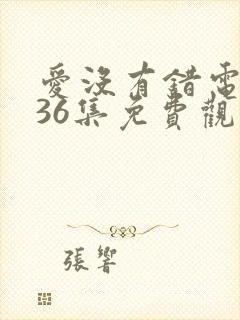 愛沒有錯電
36集免費觀
張響